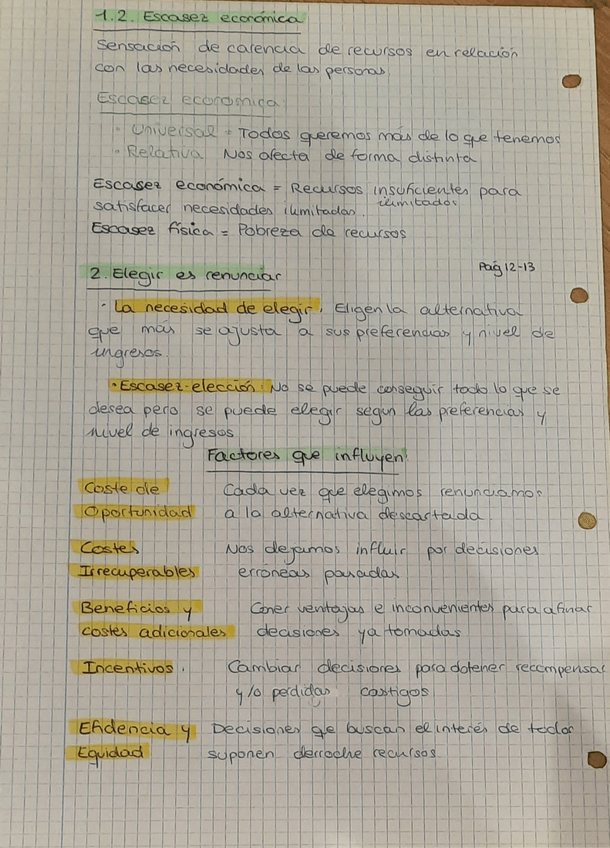 1.2. Escasez económica
Sensación de carencia de recursos en relación
con las necesidades de las personas.
Escasez economica
· Universal = Todos queremos más de lo que tenemos
· Relativa Nos afecta de forma distinta
Escasez económica = Recursos insuficientes para
satisfacer necesidades ilimitadas. ilimitados
Escasez física = Pobreza de recursos
2. Elegir es renunciar Pág 12-13
· La necesidad de elegir. Eligen la alternativa
que más se ajusta a sus preferencias y nivel de
ingresos.
· Escasez-elección: No se puede conseguir todo lo que se
desea pero se puede elegir segun las preferencias y
nivel de ingresos
Factores que influyen
Coste de Cada vez que elegimos renunciamos
Oportunidad a la alternativa descartada.
Costes Nos dejamos influir por decisiones
Irrecuperables erroneas pasadas
Beneficios y Coner ventajas e inconvenientes para afinar
costes adicionales decisiones ya tomadas
Incentivos. Cambiar decisiones para obtener recompensas
y/o perdidas castigos
Eficiencia y Decisiones qe buscan el interés de todos
Equidad suponen derroche recursos.